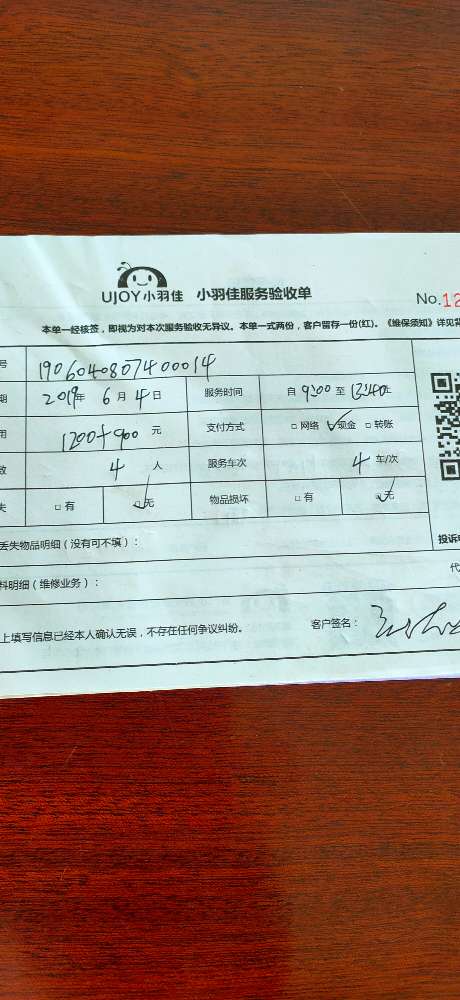 UJOY小羽佳 小羽佳服务验收单
No.12
本单一经核签，即视为对本次服务验收无异议。本单一式两份，客户留存一份(红)。《维保须知》详见背
号 1906040807400014
期 2019年 6月 4日 服务时间 自 9:00 至 13:40止
用 1200+900 元 支付方式 □ 网络 ☑现金 □ 转账
数 4 人 服务车次 4 车/次
失 □ 有 ☑无 物品损坏 □ 有 ☑无
丢失物品明细（没有可不填）： 投诉
料明细（维修业务）： 代
上填写信息已经本人确认无误，不存在任何争议纠纷。 客户签名：